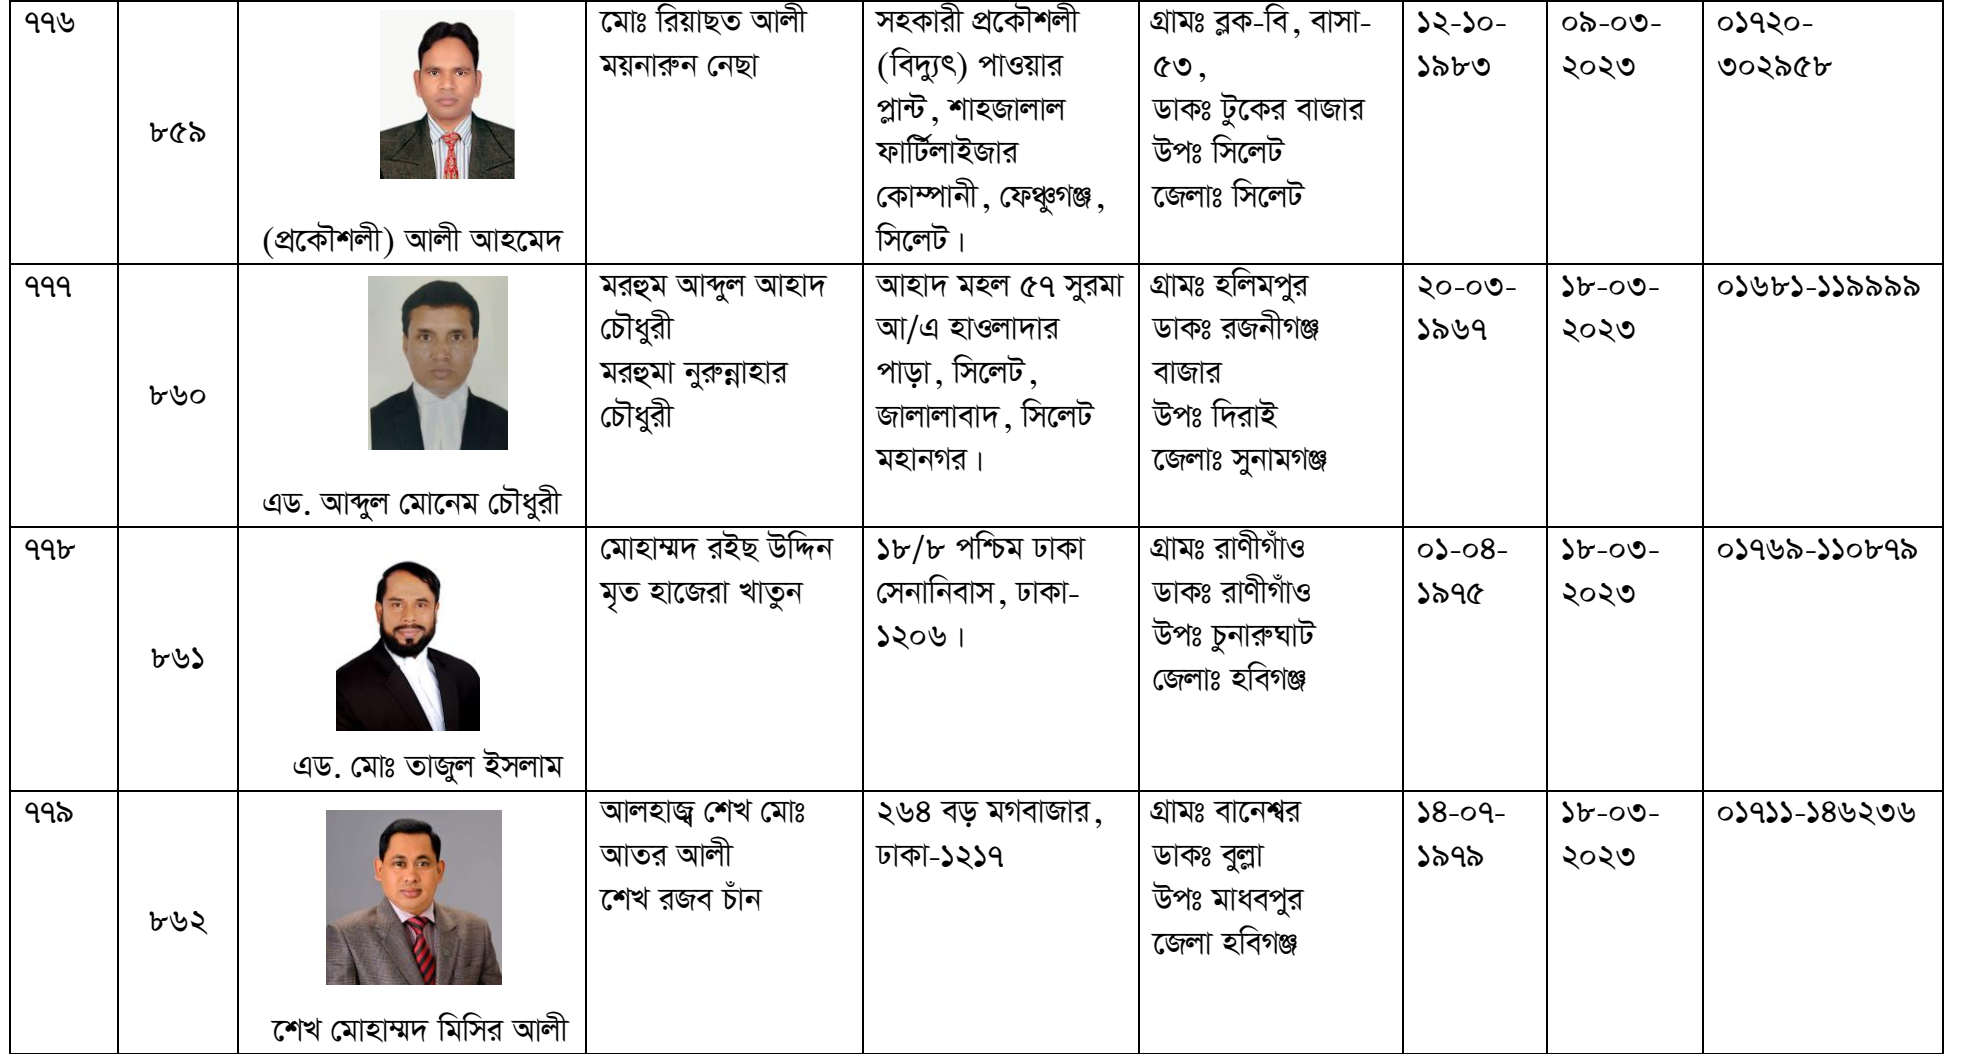 ৭৭৬
৮৫৯
(প্রকৌশলী) আলী আহমেদ
মোঃ রিয়াছত আলী
ময়নারুন নেছা
সহকারী প্রকৌশলী
(বিদ্যুৎ) পাওয়ার
প্লান্ট, শাহজালাল
ফার্টিলাইজার
কোম্পানী, ফেঞ্চুগঞ্জ,
সিলেট।
গ্রামঃ ব্লক-বি, বাসা-
৫৩,
ডাকঃ টুকের বাজার
উপঃ সিলেট
জেলাঃ সিলেট
১২-১০-
১৯৮৩
০৯-০৩-
২০২৩
০১৭২০-
৩০২৯৫৮
৭৭৭
৮৬০
এড. আব্দুল মোনেম চৌধুরী
মরহুম আব্দুল আহাদ
চৌধুরী
মরহুমা নুরুন্নাহার
চৌধুরী
আহাদ মহল ৫৭ সুরমা
আ/এ হাওলাদার
পাড়া, সিলেট,
জালালাবাদ, সিলেট
মহানগর।
গ্রামঃ হলিমপুর
ডাকঃ রজনীগঞ্জ
বাজার
উপঃ দিরাই
জেলাঃ সুনামগঞ্জ
২০-০৩-
১৯৬৭
১৮-০৩-
২০২৩
০১৬৮১-১১৯৯৯৯
৭৭৮
৮৬১
এড. মোঃ তাজুল ইসলাম
মোহাম্মদ রইছ উদ্দিন
মৃত হাজেরা খাতুন
১৮/৮ পশ্চিম ঢাকা
সেনানিবাস, ঢাকা-
১২০৬।
গ্রামঃ রাণীগাঁও
ডাকঃ রাণীগাঁও
উপঃ চুনারুঘাট
জেলাঃ হবিগঞ্জ
০১-০৪-
১৯৭৫
১৮-০৩-
২০২৩
০১৭৬৯-১১০৮৭৯
৭৭৯
৮৬২
শেখ মোহাম্মদ মিসির আলী
আলহাজ্ব শেখ মোঃ
আতর আলী
শেখ রজব চাঁন
২৬৪ বড় মগবাজার,
ঢাকা-১২১৭
গ্রামঃ বানেশ্বর
ডাকঃ বুল্লা
উপঃ মাধবপুর
জেলা হবিগঞ্জ
১৪-০৭-
১৯৭৯
১৮-০৩-
২০২৩
০১৭১১-১৪৬২৩৬